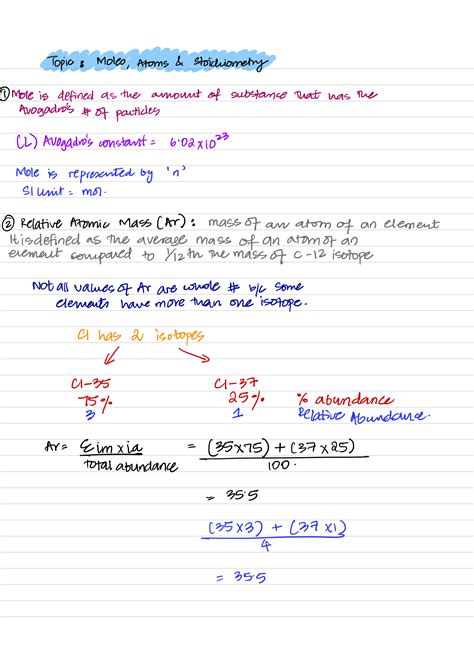 Topic : Moles, Atoms & Stoichiometry
① Mole is defined as the amount of substance that has the
Avogadro's # of particles
(L) Avogadro's constant = 6.02 x 10²³
Mole is represented by 'n'
SI unit = mol.
② Relative Atomic Mass (Ar) : mass of an atom of an element
It is defined as the average mass of an atom of an
element compared to 1/12th the mass of C-12 isotope
Not all values of Ar are whole # b/c some
elements have more than one isotope.
Cl has 2 isotopes
Cl-35 Cl-37
75% 25% % abundance
3 1 Relative Abundance.
Ar = Σ im x ia = (35x75) + (37 x 25)
total abundance 100.
= 35.5
(35x3) + (37x1)
4
= 35.5